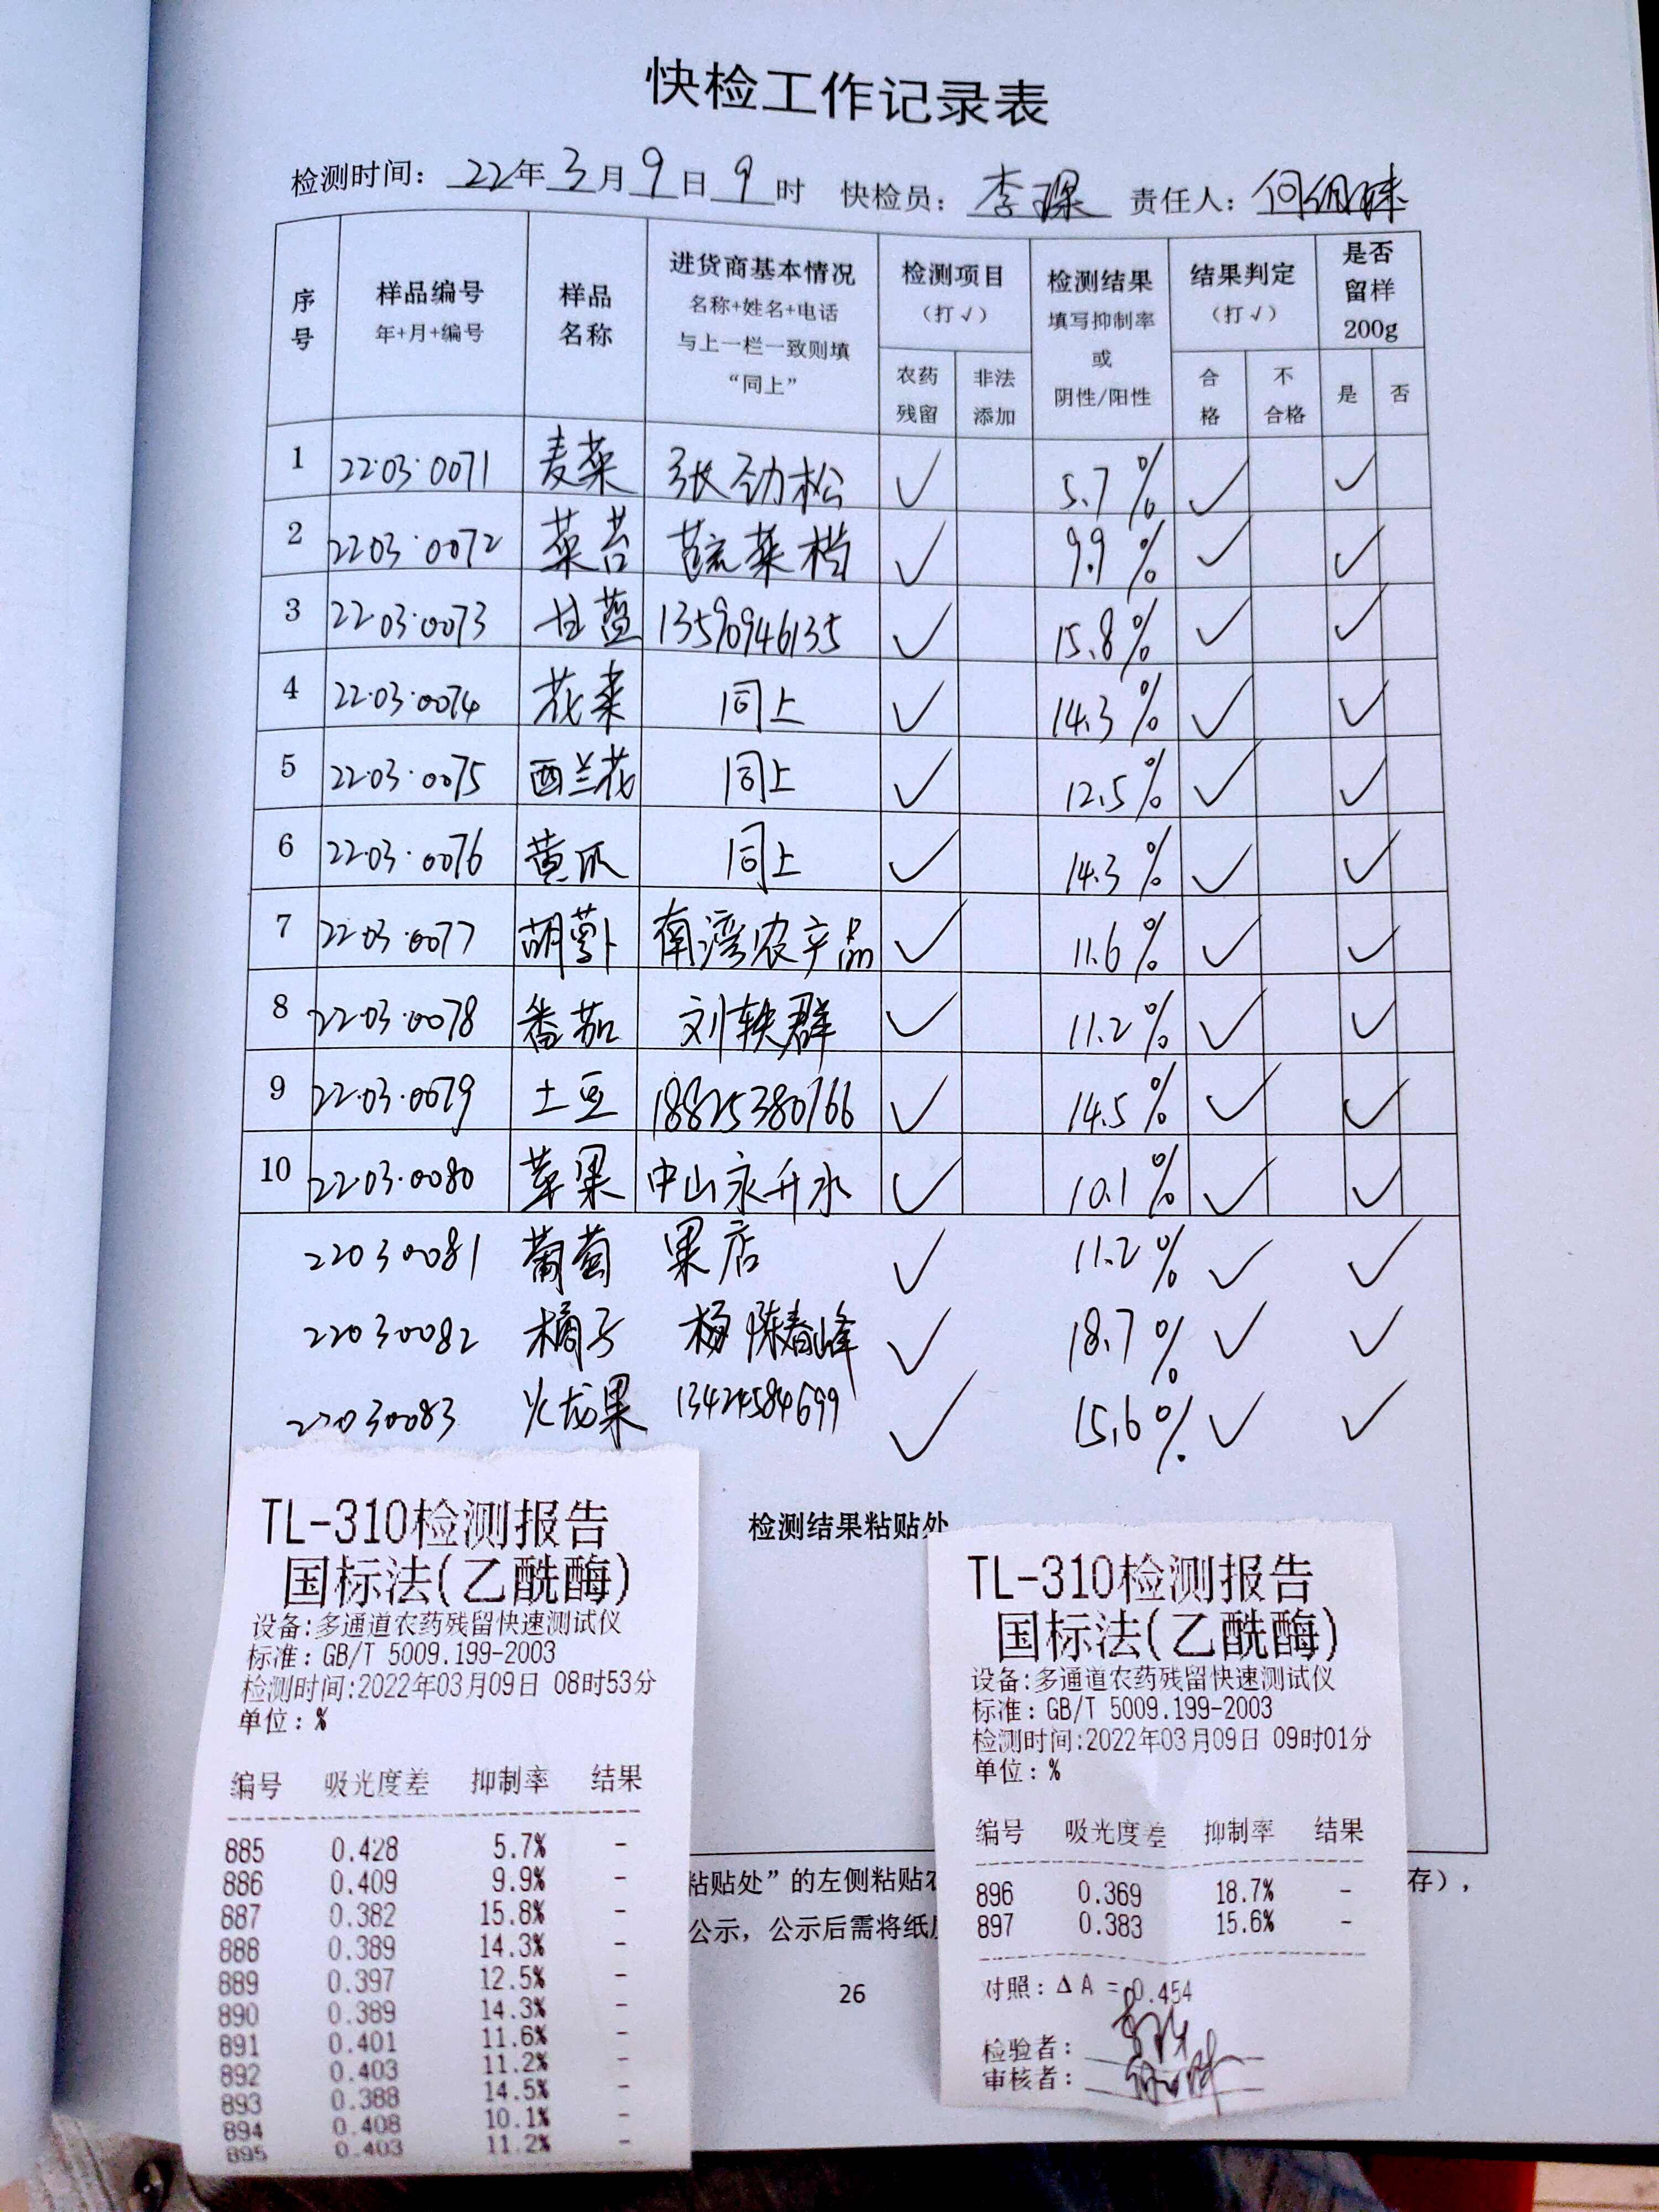 快检工作记录表
检测时间：22年3月9日9时 快检员：李琛 责任人：
序号 样品编号 年+月+编号 样品名称 进货商基本情况 名称+姓名+电话 与上一栏一致则填“同上” 检测项目（打√） 农药残留 非法添加 检测结果 填写抑制率或阴性/阳性 结果判定（打√） 合格 不合格 是否留样200g 是 否
1 22·03·0071 麦菜 张劲松 ✓ 5.7% ✓ ✓
2 2203·0072 菜苔 蔬菜档 ✓ 9.9% ✓ ✓
3 22·03·0073 甘蓝 13590946135 ✓ 15.8% ✓ ✓
4 22·03·0074 花菜 同上 ✓ 14.3% ✓ ✓
5 22·03·0075 西兰花 同上 ✓ 12.5% ✓ ✓
6 22·03·0076 黄瓜 同上 ✓ 14.3% ✓ ✓
7 22·03·0077 胡萝卜 南湾农产品 ✓ 11.6% ✓ ✓
8 22·03·0078 番茄 刘轶群 ✓ 11.2% ✓ ✓
9 22·03·0079 土豆 18825380766 ✓ 14.5% ✓ ✓
10 22·03·0080 苹果 中山永升水 ✓ 10.1% ✓ ✓
22030081 葡萄 果店 ✓ 11.2% ✓ ✓
22030082 橘子 陈春峰 ✓ 18.7% ✓ ✓
22030083 火龙果 13424584699 ✓ 15.6% ✓ ✓
检测结果粘贴处
TL-310检测报告
国标法(乙酰酶)
设备:多通道农药残留快速测试仪
标准：GB/T 5009.199-2003
检测时间:2022年03月09日 08时53分
单位：%
编号 吸光度差 抑制率 结果
885 0.428 5.7% -
886 0.409 9.9% -
887 0.382 15.8% -
888 0.389 14.3% -
889 0.397 12.5% -
890 0.389 14.3% -
891 0.401 11.6% -
892 0.403 11.2% -
893 0.388 14.5% -
894 0.408 10.1% -
895 0.403 11.2% -
TL-310检测报告
国标法(乙酰酶)
设备:多通道农药残留快速测试仪
标准：GB/T 5009.199-2003
检测时间:2022年03月09日 09时01分
单位：%
编号 吸光度差 抑制率 结果
896 0.369 18.7% -
897 0.383 15.6% -
对照：Δ A = 0.454
检验者：
审核者：
粘贴处”的左侧粘贴农 存），
公示，公示后需将纸
26